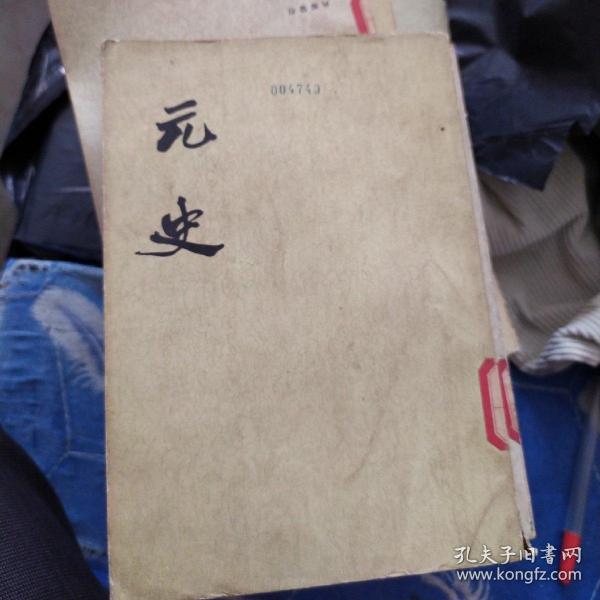 004740
元史
孔夫子旧书网
www.kongfz.com